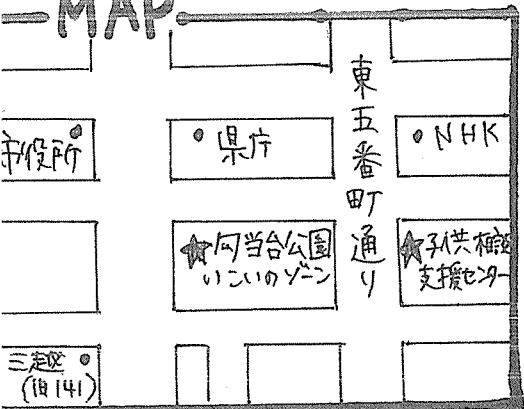 MAP
市役所
県庁
東五番町通り
NHK
勾当台公園
いこいのゾーン
子供相談
支援センター
三越
(旧141)